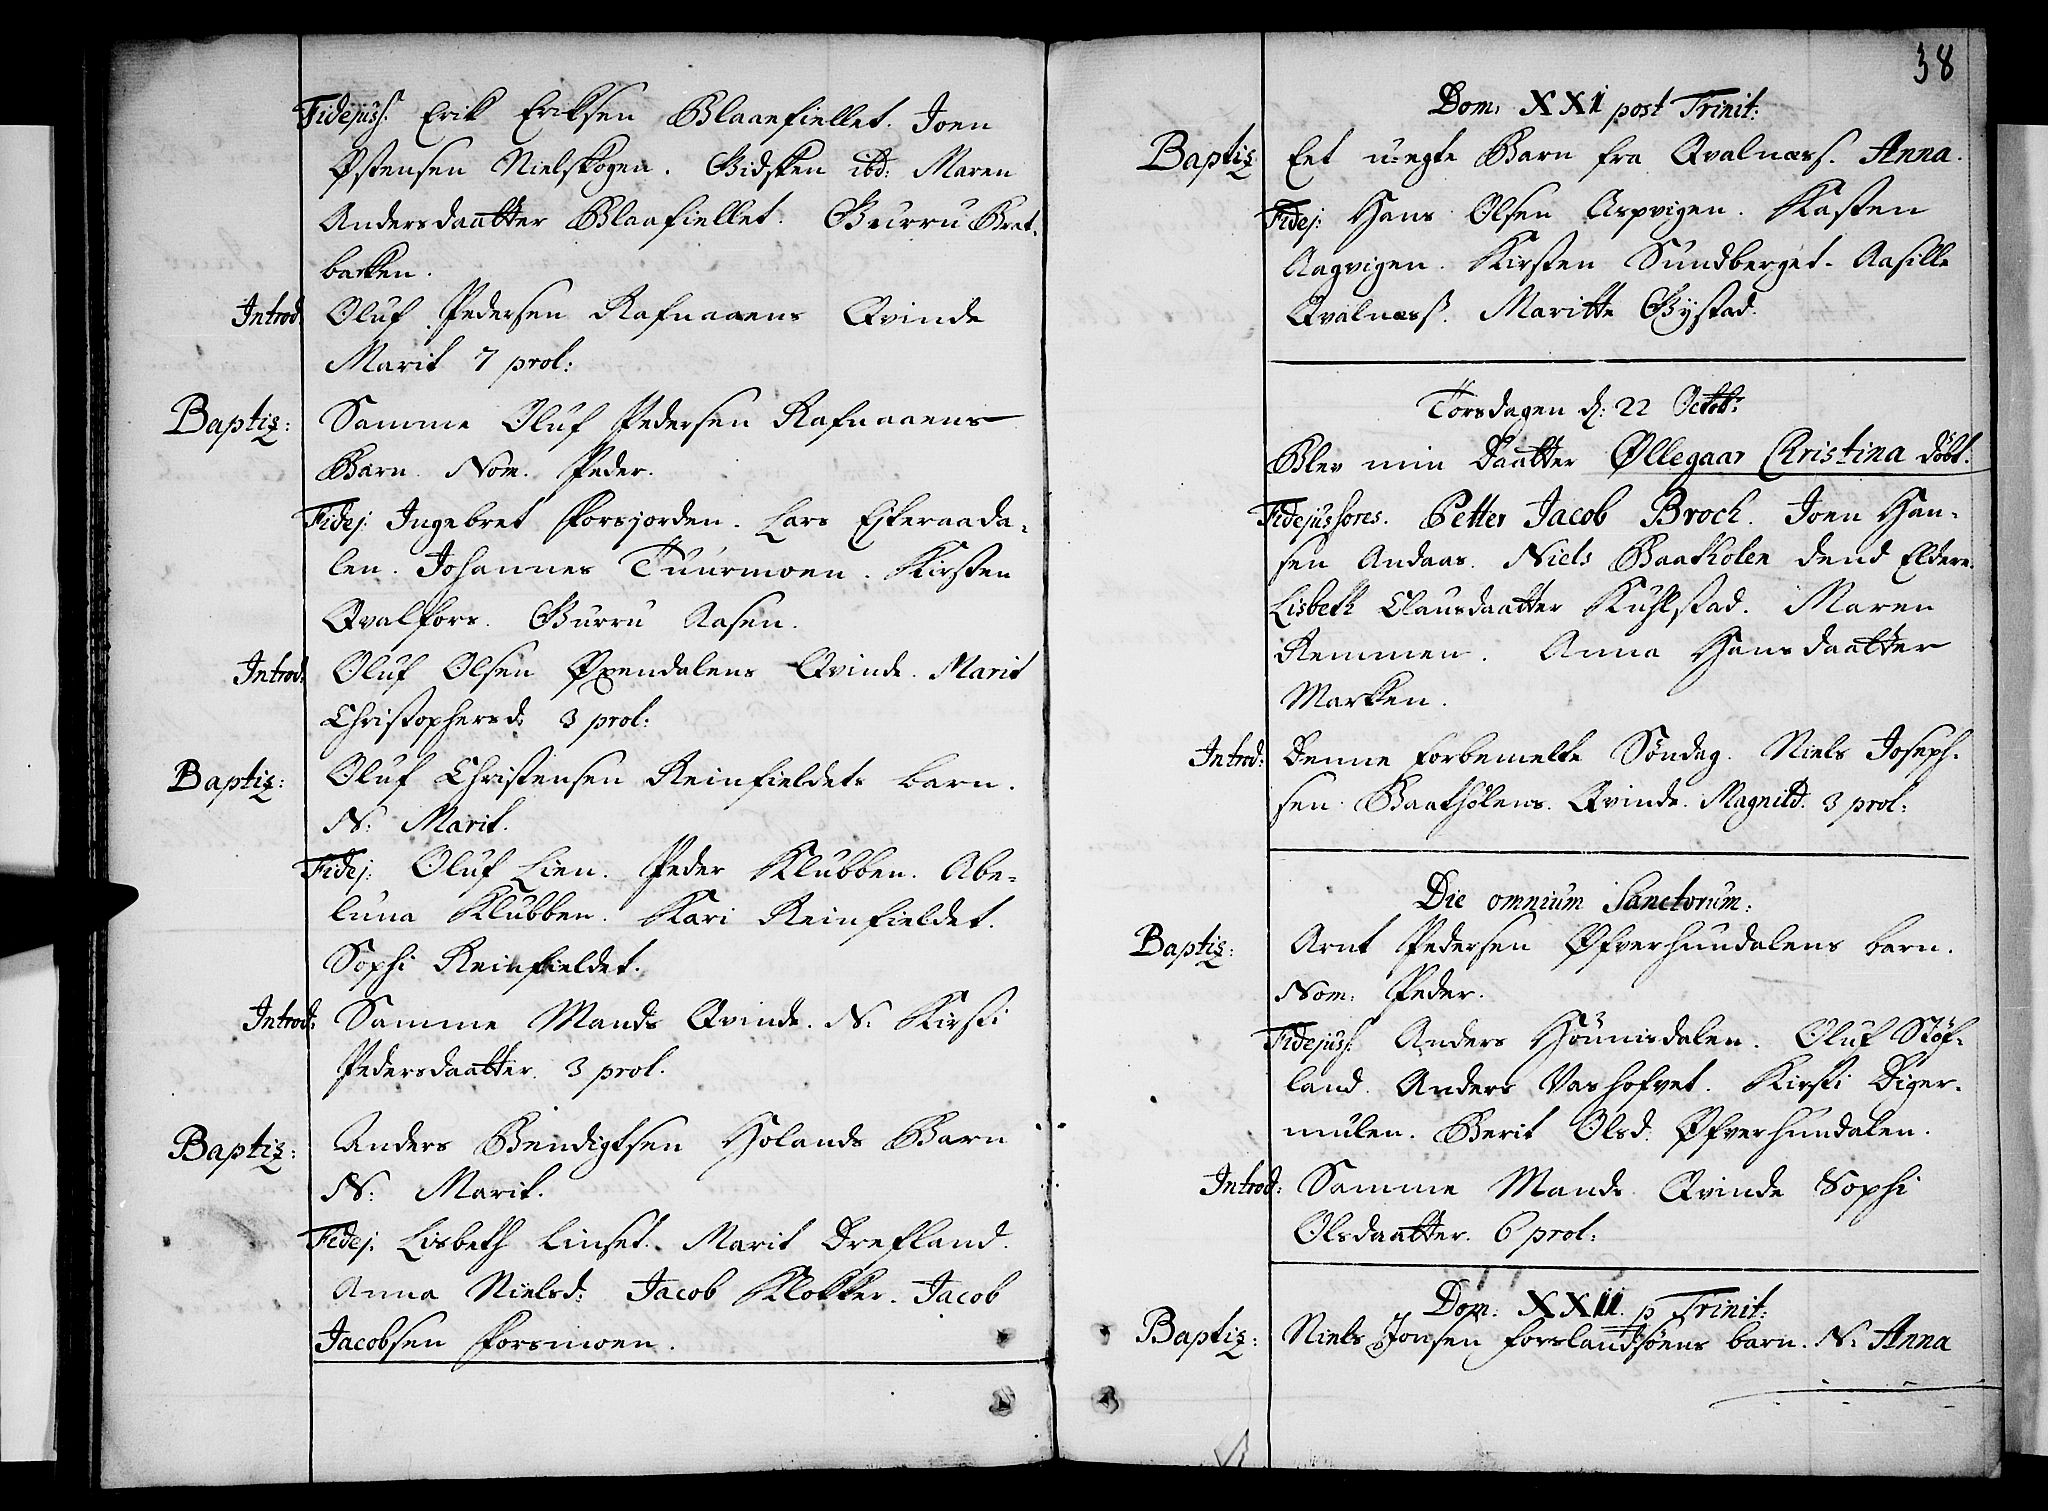 Fidejuss. Erik Eriksen Blaaefiellet. Joen
Østensen Nielskogen. Gidsken ibd: Maren
Andersdaatter Blaafiellet. Gurru Brat-
backen.
Introd. Oluf Pedersen Rafnaaens Qvinde
Marit 7 prol:
Baptiz: Samme Oluf Pedersen Rafnaaens
Barn. Nom. Peder.
Fidej: Ingebret Forsjorden. Lars Eiteraada-
len. Johannes Tuurmoen. Kirsten
Qvalfors. Gurru Aasen.
Introd: Oluf Olsen Øxendalens Qvinde. Marit
Christophersd: 3 prol:
Baptiz: Oluf Christensen Reinfieldets barn.
N: Marit.
Fidej: Oluf Lien. Peder Klubben. Abe-
luna Klubben. Kari Reinfieldet.
Sophi Reinfieldet.
Introd: Samme Mands Qvinde. N: Kirsti
Pedersdaatter. 3 prol.
Baptiz: Anders Bendigtsen Holands Barn
N: Marit.
Fidej. Lisbeth Linset. Marit Drefland.
Anna Nielsd: Jacob Klokker. Jacob
Jacobsen Forsmoen.
38
Dom: XXI post Trinit:
Baptiz: Eet u-egte Barn fra Qvalnæss. Anna.
Fidej: Hans Olsen Aspvigen. Kasten
Aagvigen. Kirsten Sundberget. Aasille
Qvalness. Maritte Gystad.
Torsdagen d: 22 Octob:
Blev min Daatter Øllegaar Christina döbt.
Fidejussores. Petter Jacob Broch. Joen Han-
sen Andaas. Niels Baatholen dend Eldere.
Lisbeth Clausdaatter Kuhlstad. Maren
Remmen. Anna Hansdaatter
Marken.
Introd: Denne forbemelte Söndag. Niels Joseph-
sen Baathölens Qvinde. Magnild. 3 prol:
Die omnium Sanctorum:
Baptiz: Arnt Pedersen Øfverhundalens barn.
Nom: Peder.
Fidejuss. Anders Hönnisdalen. Oluf Stöf-
land. Anders Vashofvet. Kirsti Diger-
mulen. Berit Olsd: Øfverhundalen.
Introd: Samme Mands Qvinde Sophi
Olsdaatter. 6 prol:
Dom: XXII p Trinit:
Baptiz: Niels Jonsen Forslandsöens barn. N: Anna